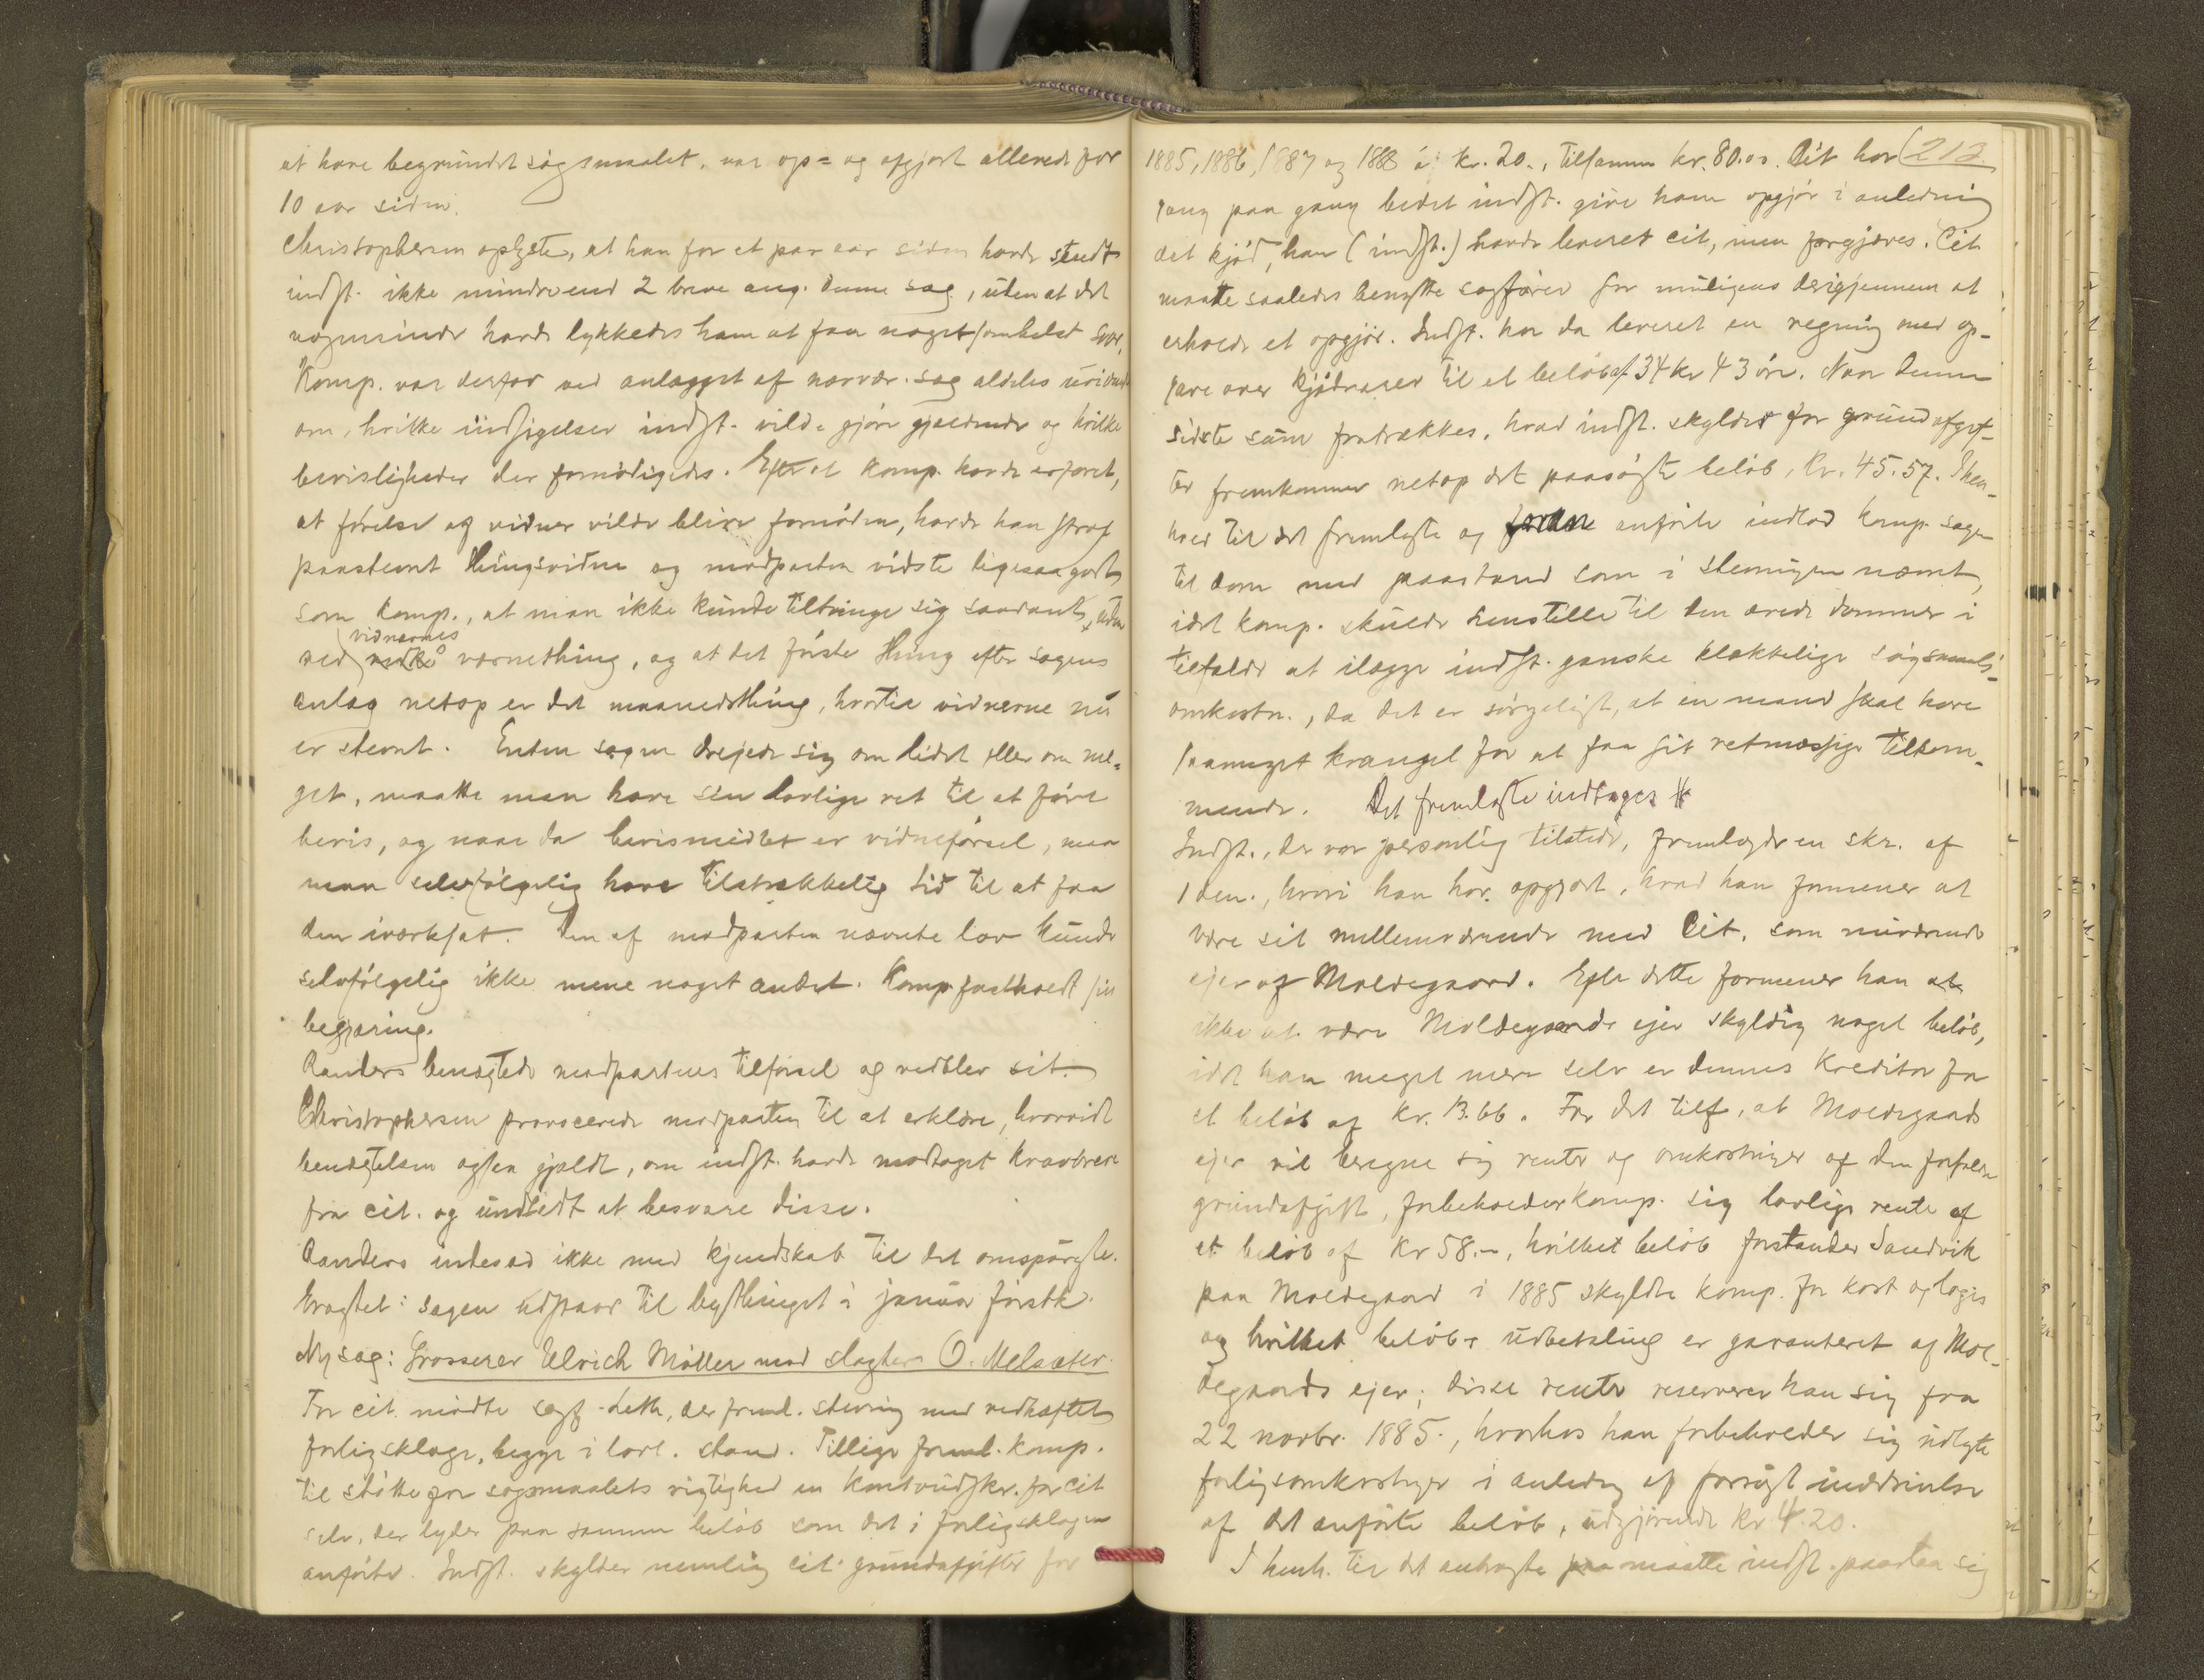 at have begrundet søgsmaalet, var op= og afgjort allerede for
10 aar siden.
Christophersen oplyste, at han for et par aar siden havde sendt
indst. ikke mindre end 2 breve ang. denne sag, uden at det
nogensinde havde lykkedes ham at faa noget somhelst svar,
Komp. var derfor ved anlægget af nærvær. sag aldeles uvidende
om, hvilke indsigelser indst. vilde gjøre gjældende og hvilke
bevisligheder der fornødigedes. Efter at Komp. havde erfaret,
at førelse af vidner vilde blive fornøden, havde han strax
paastevnt thingsvidne og modparten vidste ligesaa godt
som komp., at man ikke kunde tiltvinge sig saadant, uden
ved vidnernes værnething, og at det første thing efter sagens
anlæg netop er det maanedsthing, hvortil vidnerne nu
er stevnt. Enten sagen drejede sig om lidet eller om me=
get, maatte man have sin lovlige ret til at føre
bevis, og naar da bevismidlet er vidneførsel, maa
man selvfølgelig have tilstrækkelig tid til at faa
den iværksat. Den af modparten nævnte lov kunde
selvfølgelig ikke mene noget andet. Komp. fastholdt sin
begjæring.
Randers benægtede modpartens tilførsel og vedblev sit.
Christophersen provocerede modparten til at erklære, hvorvidt
benægtelsen ogsaa gjaldt, om indst. havde modtaget kravbreve
fra cit. og undladt at besvare disse.
Randers indesad ikke med kjendskab til det omspørgte.
Eragtet: sagen udstaar til bythinget i januar førstk.
Ny sag: Grosserer Ulrich Møller mod slagter O. Melsæter.
For cit. mødte sagf. Leth, der freml. stevning med vedhæftet
forligsklage, begge i lovl. stand. Tillige freml. komp.
til støtte for søgsmaalets rigtighed en kontoudskr. for cit
selv, der lyder paa samme beløb som det i forligsklagen
anførte. Indst. skylder nemlig cit. grundafgifter for
212
1885, 1886, 1887 og 1888 á kr. 20., tilsammen kr. 80.00. Cit har
gang paa gang bedet indst. give ham opgjør i anledning
det kjød, han (indst.) havde leveret cit, men forgjæves. Cit
maatte saaledes benytte sagfører for muligens derigjennem at
erholde et opgjør. Indst. har da leveret en regning med op-
gave over kjødvarer til et beløb af 34 kr 43 øre. Naar denne
sidste sum fratrækkes, hvad indst. skylder for grundafgif-
ter fremkommer netop det paasøgte beløb, Kr. 45.57. I hen-
hold til det fremlagte og anførte indlod komp. sagen
til dom med paastand som i stevningen nævnt,
idet komp. skulde henstille til den ærede dommer i
tilfælde at ilægge indst. ganske klækkelige søgsmaals-
omkostn., da det er sørgeligt, at en mand skal have
saameget krangel for at faa sit retmæssige tilkom-
mende. Det fremlagte indtages #
Indst., der var personlig tilstede, fremlagde en skr. af
1 den., hvori han har opgjort, hvad han formener at
være sit mellemværende med Cit. som nuværende
ejer af Moldegaard. Efter dette formener han
ikke at være Moldegaards ejer skyldig noget beløb,
idet han meget mere selv er dennes kreditor for
et beløb af Kr. 13.66. For det tilf., at Moldegaards
ejer vil beregne sig renter og omkostninger af den forfaldne
grundafgift, forbeholder komp. sig lovlige rente af
et beløb af Kr 58.-, hvilket beløb forstander Sandvik
paa Moldegaard i 1885 skyldte komp. for kost og logis
og hvilket beløbs udbetaling er garanteret af Mol-
degaards ejer; disse renter reserverer han sig fra
22 novbr. 1885., hvorhos han forbeholder sig udlagte
forligsomkostninger i anledn af forsøgt inddrivelse
af det anførte beløb, udgjørende Kr 4.20.
I henh. til det anbragte maatte indst. paastaa sig